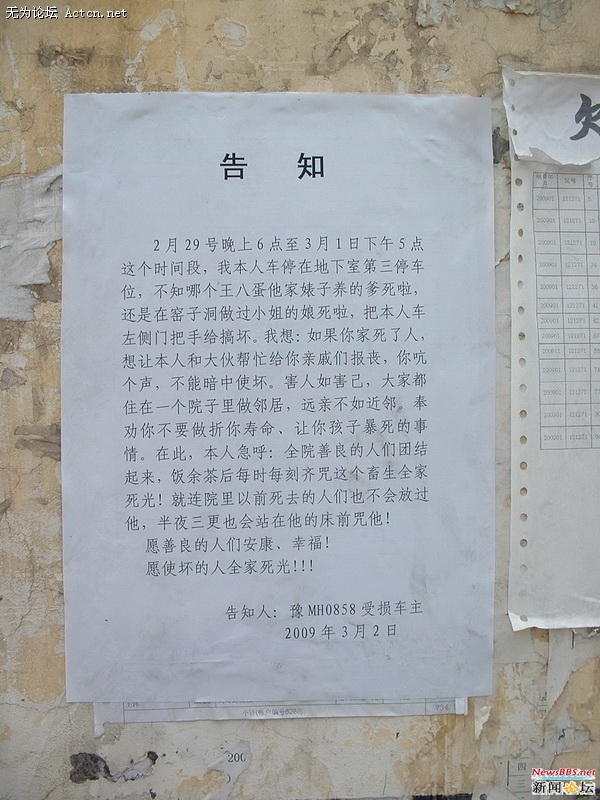 无为论坛 Actcn.net
告 知
2月29号晚上6点至3月1日下午5点
这个时间段，我本人车停在地下室第三停车
位，不知哪个王八蛋他家婊子养的爹死啦，
还是在窑子洞做过小姐的娘死啦，把本人车
左侧门把手给搞坏。我想：如果你家死了人，
想让本人和大伙帮忙给你亲戚们报丧，你吭
个声，不能暗中使坏。害人如害己，大家都
住在一个院子里做邻居，远亲不如近邻。奉
劝你不要做折你寿命、让你孩子暴死的事
情。在此，本人急呼：全院善良的人们团结
起来，饭余茶后每时每刻齐咒这个畜生全家
死光！就连院里以前死去的人们也不会放过
他，半夜三更也会站在他的床前咒他！
愿善良的人们安康、幸福！
愿使坏的人全家死光！！！
告知人：豫MH0858受损车主
2009年3月2日
欠
200901 121271
200901 121271
200901 121271
200901 121271
200901 121271
200901 121271
200901 121271
200901 121271
200901 121271
200901 121271
200901 121271
200
NewsBBS.net
新闻论坛